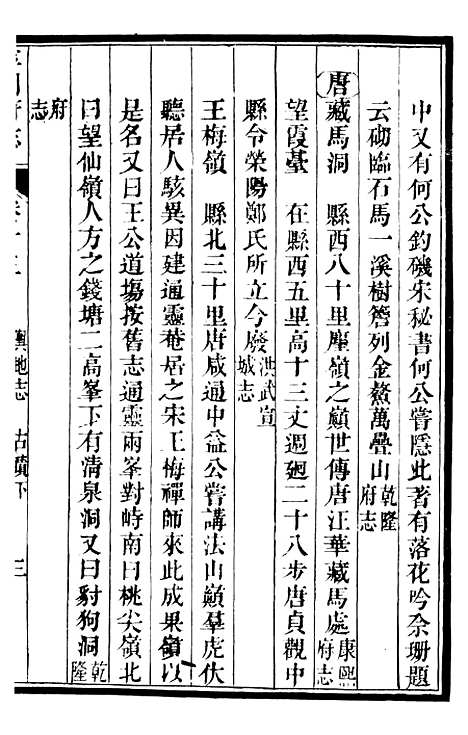 中又有何公釣磯宋秘書何公嘗隱此著有落花吟佘珊題
云砌臨石馬一溪樹簷列金鰲萬疊山乾隆府志
唐藏馬洞　縣西八十里塵嶺之巔世傳唐汪華藏馬處康熙府志
望霞臺　在縣西五里高十三丈週廻二十八步唐貞觀中
縣令榮陽鄭氏所立今廢洪武宣城志
王梅嶺　縣北三十里唐咸通中益公嘗講法山巔羣虎伏
聽居人駭異因建通靈菴居之宋王梅禪師來此成果嶺以
是名又曰王公道塲按舊志通靈兩峯對峙南曰桃尖嶺北
曰望仙嶺人方之錢塘二高峯下有清泉洞又曰豺狗洞乾隆
府志
府志
輿地志　古蹟下　三